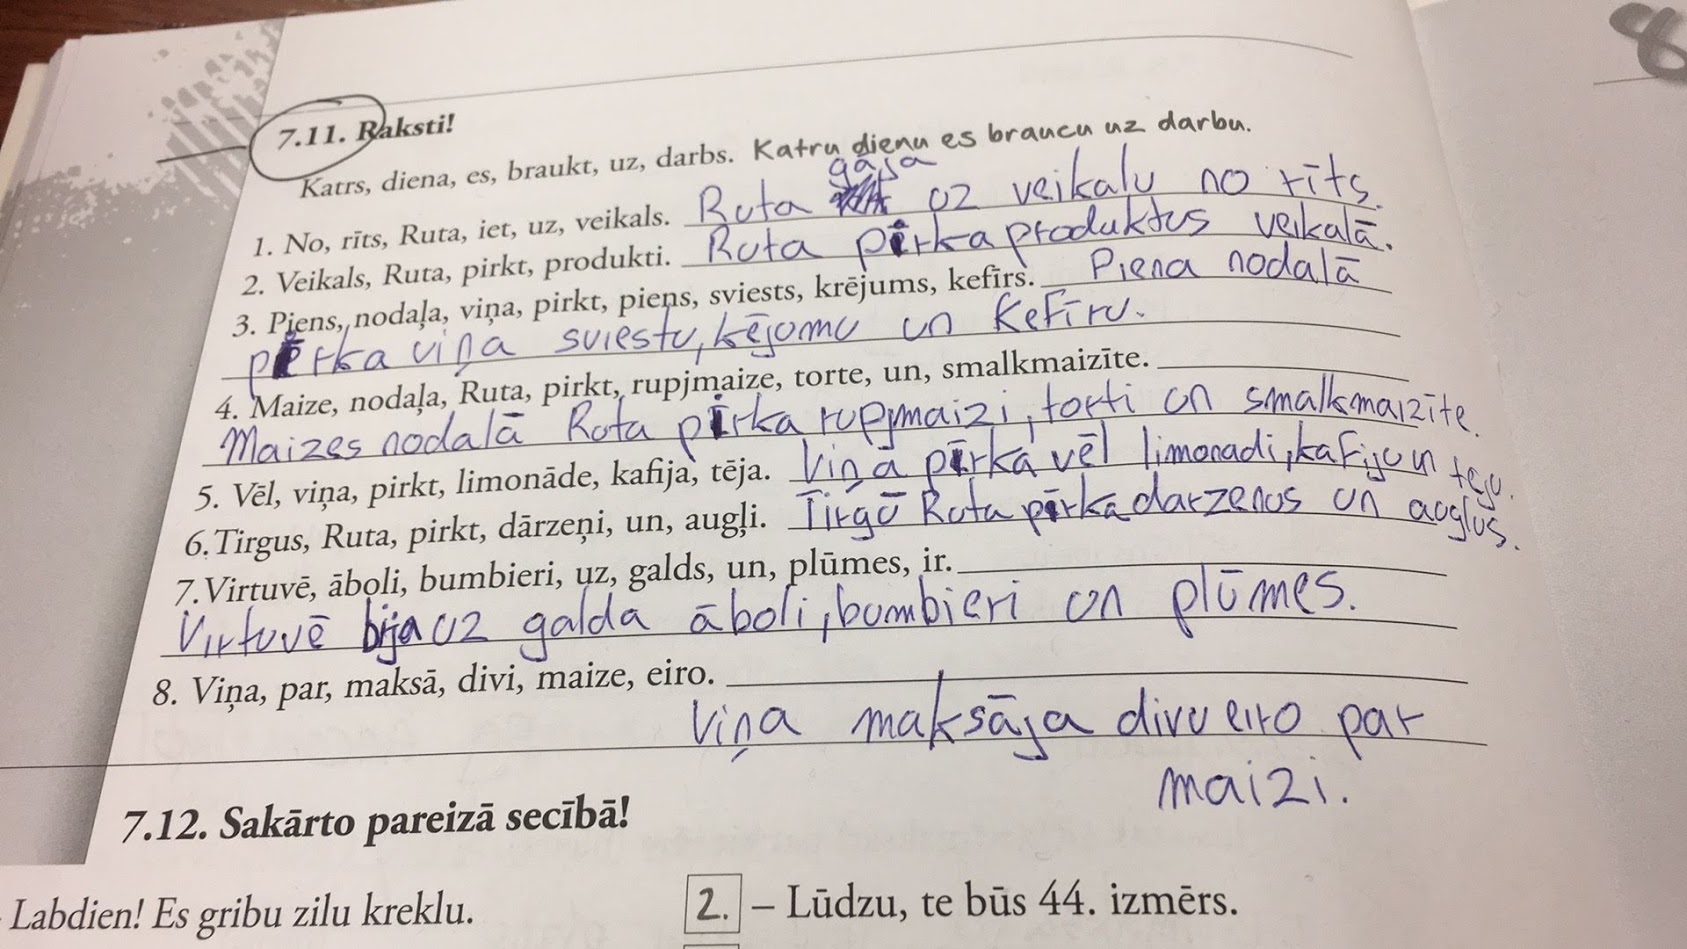 8
7.11. Raksti!
Katrs, diena, es, braukt, uz, darbs. Katru dienu es braucu uz darbu.
gāja
1. No, rīts, Ruta, iet, uz, veikals. Ruta uz veikalu no rīts.
2. Veikals, Ruta, pirkt, produkti. Ruta pirka produktus veikalā.
3. Piens, nodaļa, viņa, pirkt, piens, sviests, krējums, kefīrs. Piena nodalā
pirka viņa sviestu, kējumu un kefīru.
4. Maize, nodaļa, Ruta, pirkt, rupjmaize, torte, un, smalkmaizīte.
Maizes nodalā Ruta pirka rupjmaizi, torti un smalkmaizīte.
5. Vēl, viņa, pirkt, limonāde, kafija, tēja. Viņa pirka vēl limonadi, kafiju un teju.
6. Tirgus, Ruta, pirkt, dārzeņi, un, augļi. Tirgū Ruta pirka darzenus un auglus.
7. Virtuvē, āboli, bumbieri, uz, galds, un, plūmes, ir.
Virtuvē bija uz galda āboli, bumbieri un plūmes.
8. Viņa, par, maksā, divi, maize, eiro.
Viņa maksāja divu eiro par
maizi.
7.12. Sakārto pareizā secībā!
Labdien! Es gribu zilu kreklu.
2. – Lūdzu, te būs 44. izmērs.